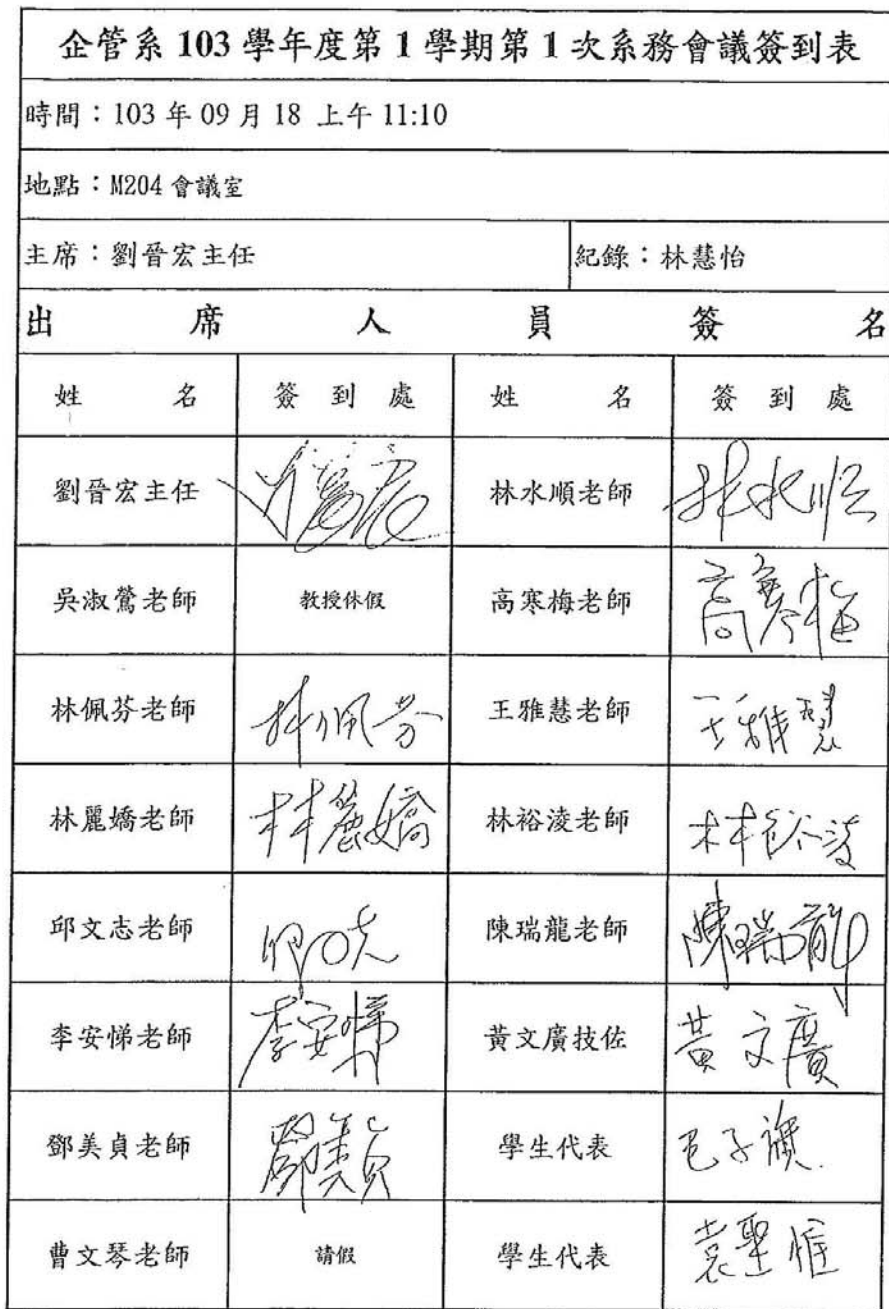 企管系 103 學年度第 1 學期第 1 次系務會議簽到表
時間：103 年 09 月 18 上午 11:10
地點：M204 會議室
主席：劉晉宏主任 紀錄：林慧怡
出席人員簽名
姓名 簽到處 姓名 簽到處
劉晉宏主任 林水順老師 林水順
吳淑鶯老師 教授休假 高寒梅老師 高寒梅
林佩芬老師 林佩芬 王雅慧老師 王雅慧
林麗嬌老師 林麗嬌 林裕淩老師 林裕淩
邱文志老師 陳瑞龍老師 陳瑞龍
李安悌老師 李安悌 黃文廣技佐 黃文廣
鄧美貞老師 鄧美貞 學生代表
曹文琴老師 請假 學生代表 袁聖惟